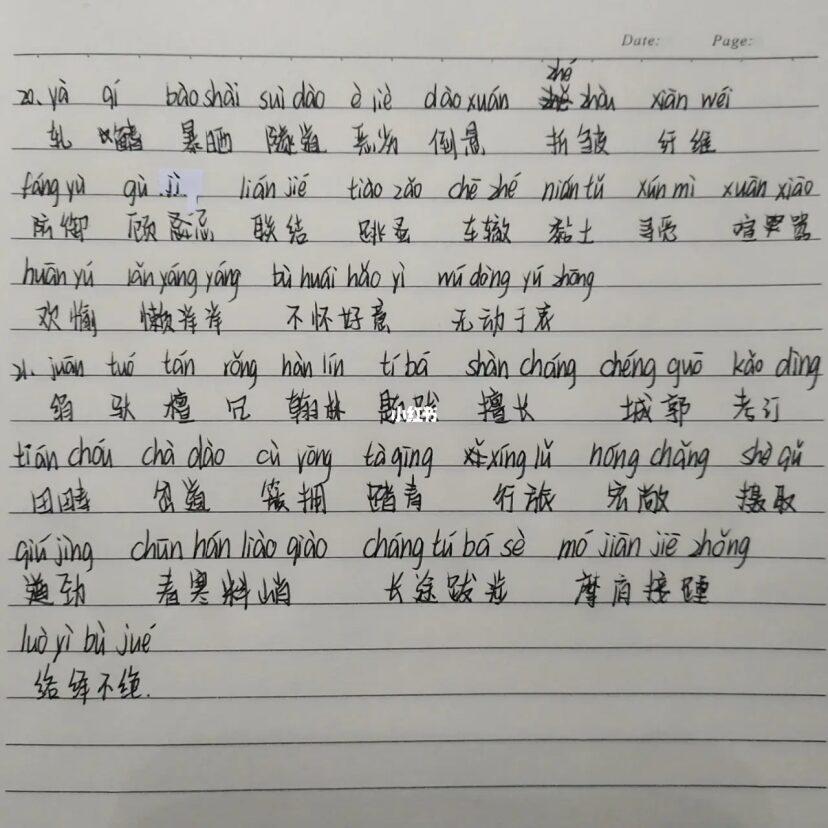 Date: Page:
zhé
20. yà qí bào shài suì dào è jiè dào xuán zhòu xiān wéi
轧 鳍 暴晒 隧道 倒悬 折皱 纤维
fáng yù gù jì lián jié tiào zǎo chē zhé nián tǔ xún mì xuān xiāo
防御 顾忌 联结 跳蚤 车辙 黏土 寻觅 喧嚣
huān yú lǎn yáng yáng bù huái hǎo yì wú dòng yú zhōng
欢愉 懒洋洋 不怀好意 无动于衷
21. juān tuó tán rǒng hàn lín tí bá shàn cháng chéng guō kǎo dìng
驮 檀 冗 翰林 擅长 城郭 考订
小红书
tián chóu chà dào cù yōng tà qīng xíng lǚ hóng chǎng shè qǔ
田畴 岔道 簇拥 踏青 行旅 宏敞 摄取
qiú jìng chūn hán liào qiào cháng tú bá shè mó jiān jiē zhǒng
遒劲 春寒料峭 长途跋涉 摩肩接踵
luò yì bù jué
络绎不绝.